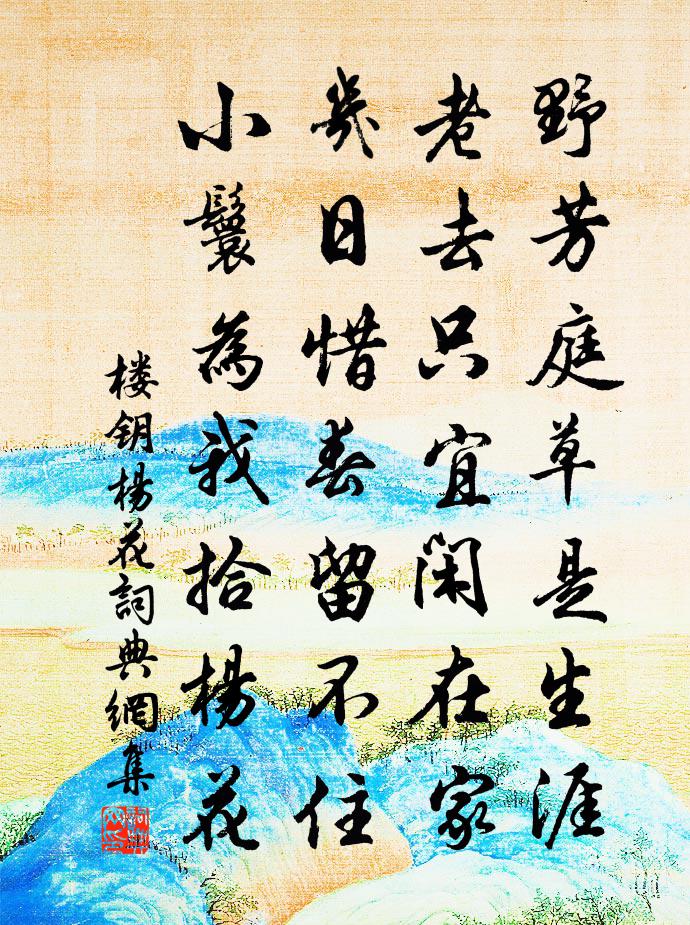 野芳庭草是生涯
老去只宜閑在家
幾日惜春留不住
小鬟為我拾楊花
楼钥楊花詞典網集